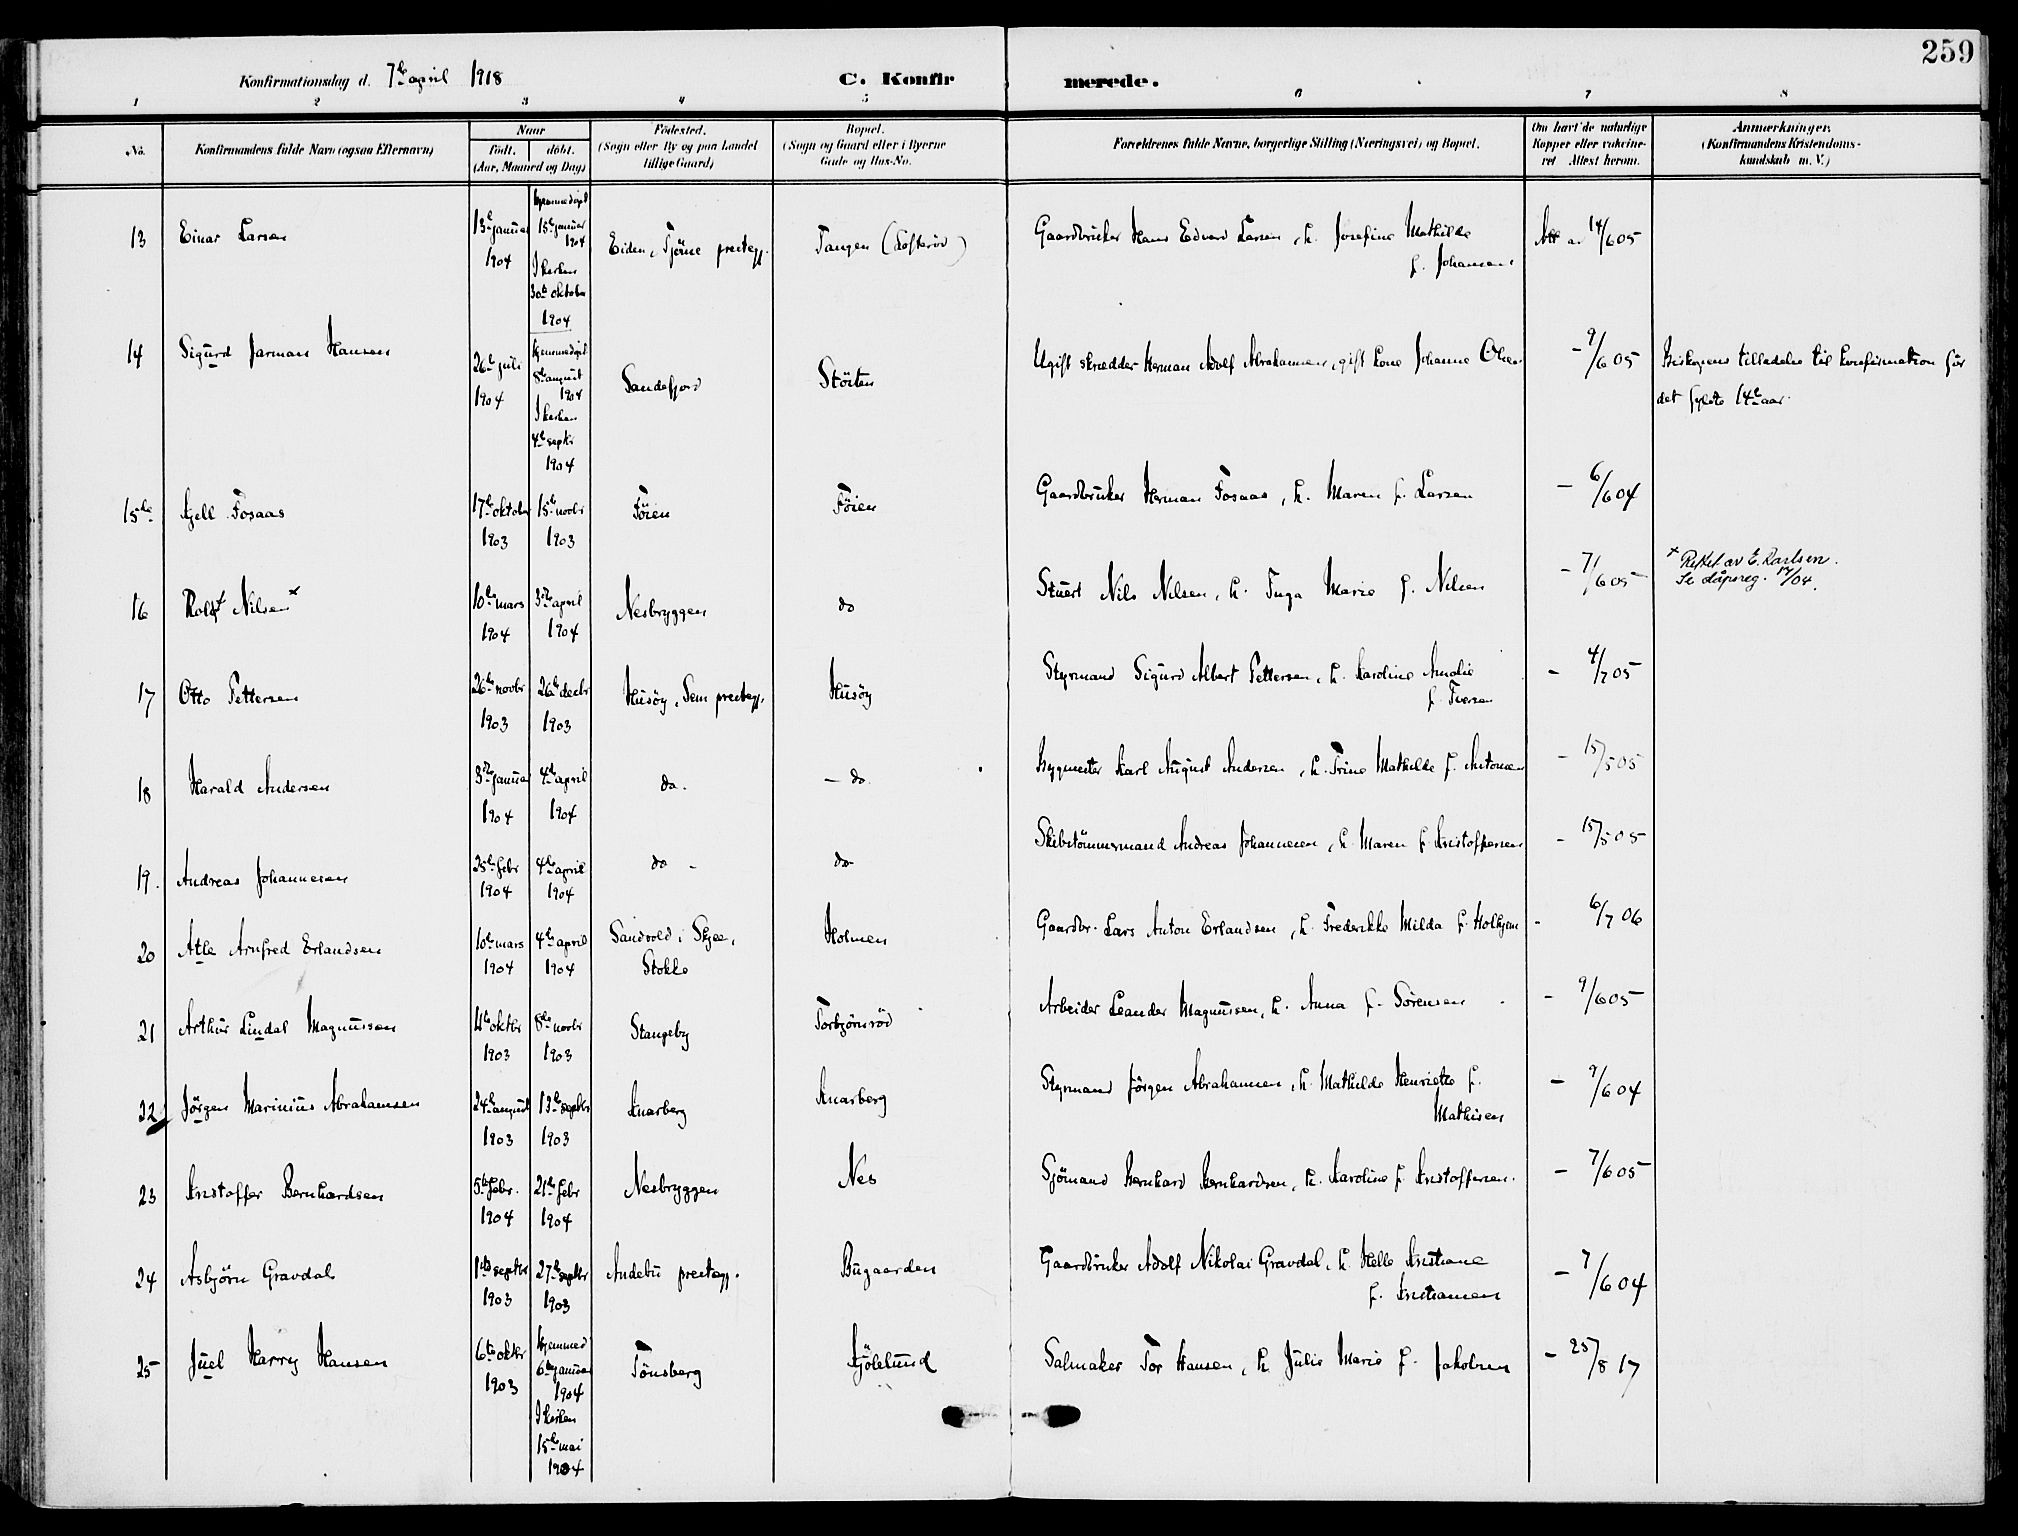 259
Konfirmationsdag d. 7de april 1918 C. Konfirmerede.
1 2 3 4 5 6 7 8
No. Konfirmandens fulde Navn (ogsaa Efternavn) Naar Fødested. Bopæl. Forældrenes fulde Navne, borgerlige Stilling (Næringsvei) og Bopæl. Om havt de naturlige Anmærkninger.
født. døbt. (Sogn eller By og paa Landet (Sogn og Gaard eller i Byerne Kopper eller vakcine- (Konfirmandens Kristendoms-
(Aar, Maaned og Dag) tillige Gaard) Gade og Hus-No. ret Attest herom. kundskab m. V.)
13 Einar Larsen 13de januar 1904 hjemmedøpt 15de januar 1904 I kirken 30te oktober 1904 Eiden, Tjöme prestegj. Tangen (Lofteröd) Gaardbruker Hans Edvard Larsen, h. Josefine Mathilde
f. Johansen Att av 14/6 05
14 Sigurd Jarman Hansen 26de juli 1904 hjemmedøpt 8de august 1904 I kirken 4de septbr 1904 Sandefjord Stöiten Ugift skrædder Herman Adolf Abrahamsen, gift kone Johanne Olsen - 9/6 05 Biskopens tilladelse til konfirmation før
det fyldte 14de aar.
15de Kjell Fosaas 17de oktober 1903 15de novbr 1903 Föien Föien Gaardbruker Herman Fosaas, h. Maren f. Larsen - 6/6 04
16 Rolf + Nilsen x 10de mars 1904 3die april 1904 Nesbryggen do Stuert Nils Nilsen, h. Inga Marie f. Nilsen - 7/6 05 x Rettet av E. Karlsen.
Se dåpsreg. 17/04.
17 Otto Pettersen 26de novbr 1903 26de decbr 1903 Husöy, Sem prestegj. Husöy Styrmand Sigurd Albert Pettersen, h. Karoline Amalie
f. Iversen - 4/7 05
18 Harald Andersen 3die januar 1904 4de april 1904 do. - do. Bygmester Karl August Andersen, h. Trine Mathilde f. Antonsen - 15/5 05
19. Andreas Johannesen 25de febr 1904 4de april 1904 do - do Skibstömmermand Andreas Johannesen, h. Maren f. Kristoffersen - 15/5 05
20 Atle Arnfred Erlandsen 10de mars 1904 4de april 1904 Sandvold i Skjee, Stokke Holmen Gaardbr. Lars Anton Erlandsen, h. Fredrikke Milda f. - 6/7 06
21 Arthur Lindal Magnussen 4de oktbr 1903 8de novbr 1903 Stangeby Torbjörnröd Arbeider Leander Magnussen, h. Anna f. Sörensen - 9/6 05
22 Jörgen Marinius Abrahamsen 24de august 1903 13de septbr 1903 Knarberg Knarberg Styrmand Jörgen Abrahamsen, h. Mathilde Henriette f.
Mathisen - 9/6 04
23 Kristoffer Bernhardsen 5te febr. 1904 21de febr 1904 Nesbryggen Nes Sjömand Bernhard Bernhardsen, h. Karoline f. Kristoffersen. - 7/6 05
24 Asbjörn Gravdal 1ste septbr 1903 27de septbr 1903 Andebu prestegj. Bugaarden Gaardbruker Adolf Nikolai Gravdal, h. Helle Kristiane
f. Kristiansen - 7/6 04
25 Juel Harry Hansen 6te oktbr 1903 hjemmed 6te januar 1904 I kirken 15de mai 1904 Tönsberg Kjölelund Salmaker Tor Hansen, h. Julie Marie f. Jakobsen - 25/8 17